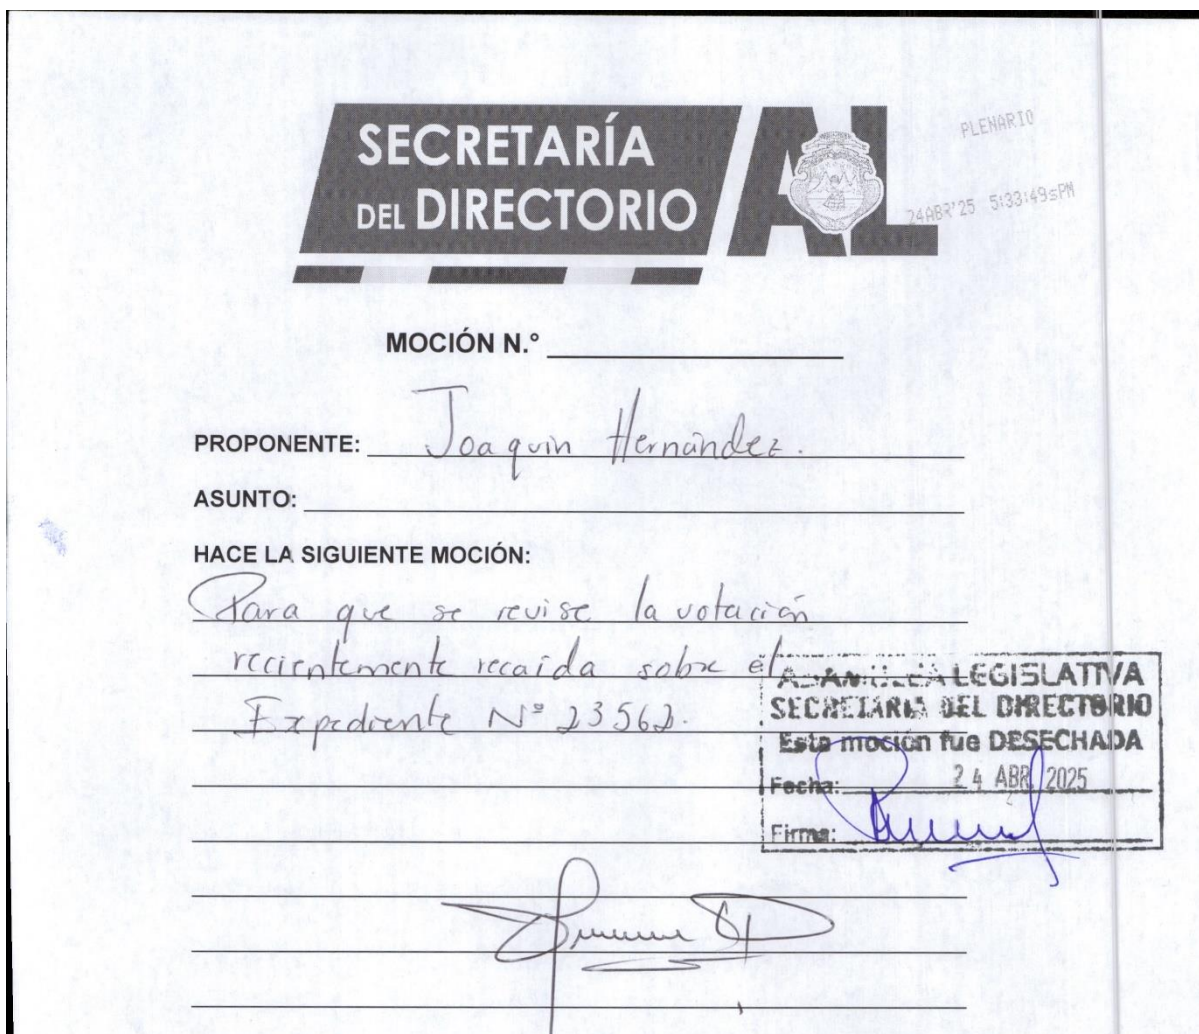 SECRETARÍA
DEL DIRECTORIO
AL
PLENARIO
24ABR'25 5:33:49sPM
MOCIÓN N.°
PROPONENTE: Joaquín Hernández.
ASUNTO:
HACE LA SIGUIENTE MOCIÓN:
Para que se revise la votación
recientemente recaída sobre el
Expediente N° 23562.
ASAMBLEA LEGISLATIVA
SECRETARIA DEL DIRECTORIO
Esta moción fue DESECHADA
Fecha: 24 ABR 2025
Firma: